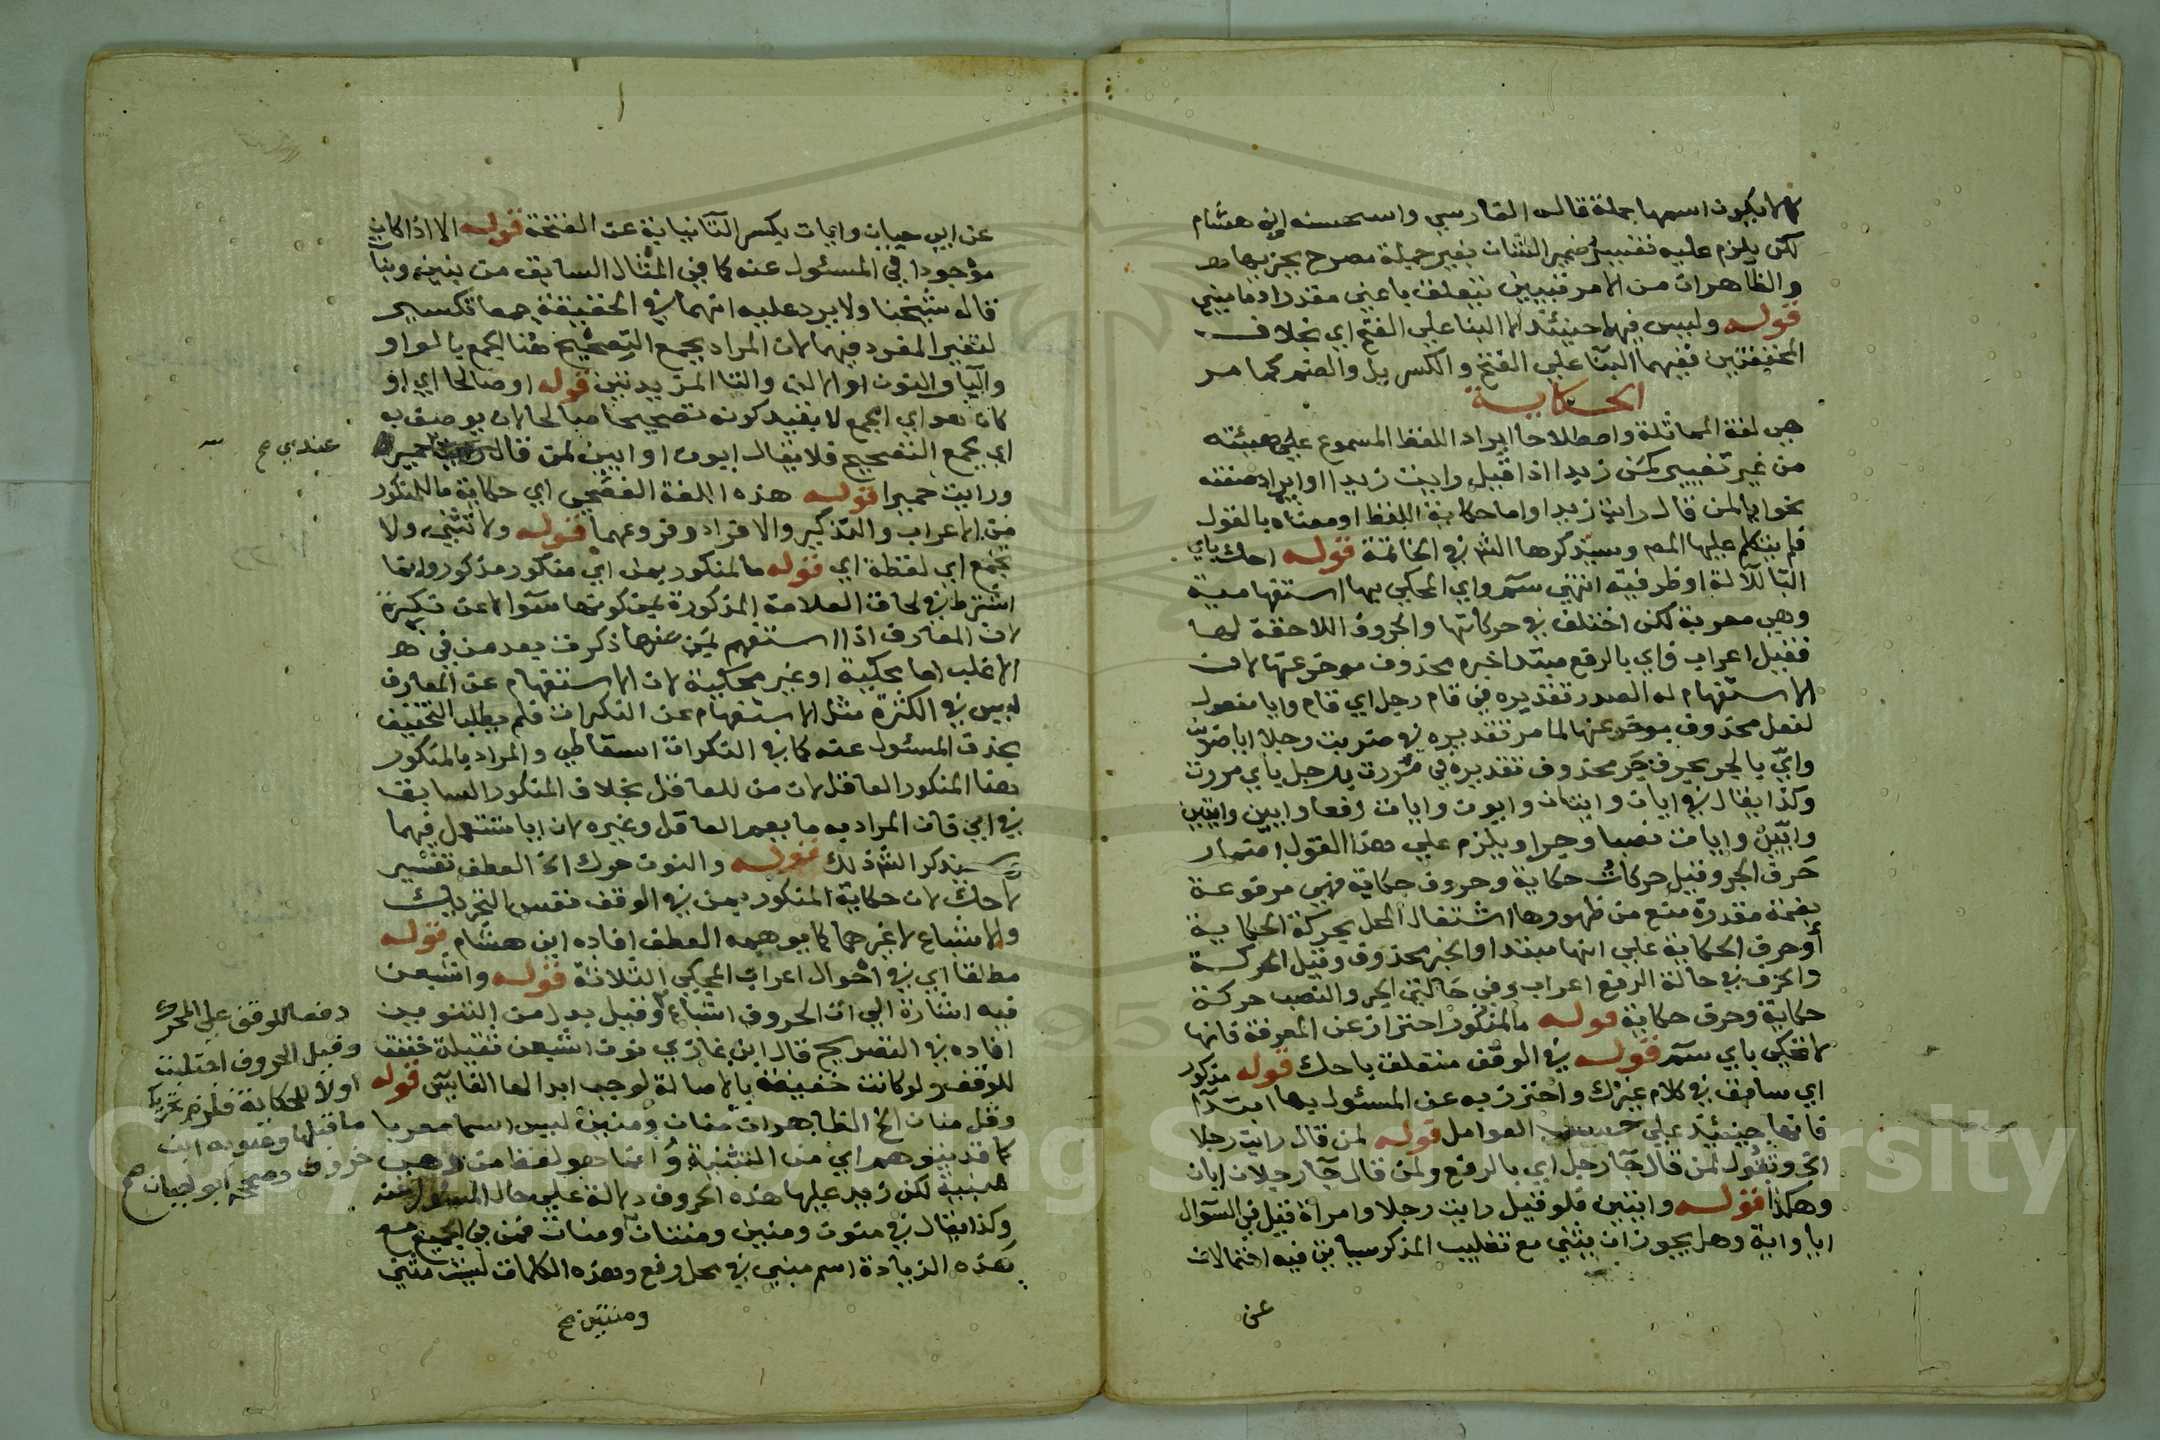 كم لا يكون اسمها جملة قاله الفارسي واستحسنه ابن هشام
لكن يلزم عليه تفسير ضمير الشان بغير جملة مصرح بجزيها
والظاهران من الامر فتبين فيتعلق باعني مقدرا دماميني
قوله وليس فيهما حينئذ الا البنا علي الفتح اي بخلاف
المخففتين ففيهما البنا علي الفتح والكسر بل والضم كما مر
الحكاية
هي لغة المماثلة واصطلاحا ايراد اللفظ المسموع علي هيئته
من غير تغيير كمن زيدا اذا قيل رايت زيدا او ايراد صفته
نحو ايا لمن قال رايت زيدا واما حكاية اللفظ او معناه بالقول
فلم يتكلم عليها المص وسيذكرها الش في الخاتمة قوله احك باي
البا للآلة او ظرفية انتهي سم واي المحكي بها استفهامية
وهي معربة لكن اختلف في حركاتها والحروف اللاحقة لها
فقيل اعراب فاي بالرفع مبتدا خبره محذوف موخر عنها لان
الاستفهام له الصدر تقديره في قام رجل اي قام وايا مفعول
لفعل محذوف موخر عنها لما مر تقديره في ضربت رجلا ايا ضربت
واي بالجر بحرف جر محذوف تقديره في مررت برجل باي مررت
وكذا يقال في ايان وايتان وايون وايات رفعا وايين وايتين
وايين وايات نصبا وجرا ويلزم علي هذا القول اضمار
حرف الجر وقيل حركات حكاية وحروف حكاية فهي مرفوعة
بضمة مقدرة منع من ظهورها اشتغال المحل بحركة الحكاية
او حرف الحكاية علي انها مبتدا والخبر محذوف وقيل الحركة
والحرف في حالة الرفع اعراب وفي حالتي الجر والنصب حركة
حكاية وحرف حكاية قوله ما لمنكور احتراز عن المعرفة فانها
لا تحكي باي سم قوله في الوقف متعلق باحك قوله مذكور
اي سابق في كلام غيرك واحترز به عن المسئول بها ابتدآ
فانها حينئذ علي حسب العوامل قوله لمن قال رايت رجلا
الخ وتقول لمن قال جآ رجل اي بالرفع ولمن قال جآ رجلان ايان
وهكذا قوله وايتين فلو قيل رايت رجلا وامراة قيل في السوال
ايا واية وهل يجوز ان يثني مع تغليب المذكر سياتي فيه احتمالات
عن
عن ابي حيان وايات بكسر التا نيابة عن الفتحة قوله الا اذا كان
موجودا في المسئول عنه كما في المثال السابق من بنين وبنات
قاله شيخنا ولا يرد عليه انهما في الحقيقة جمعا تكسير
لتغير المفرد فيهما لان المراد بجمع التصحيح هنا الجمع بالواو
واليا والنون او الالف والتا المزيدتين قوله او صالحا اي او
كان هو اي الجمع لا بقيد كونه تصحيحا صالحا لان يوصف به
اي بجمع التصحيح فلا يقال ايون او ايين لمن قال
عندي صح
ورايت حميرا قوله هذه اللغة الفصحي اي حكاية ما للمنكور
من الاعراب والتذكير والافراد وفروعهما قوله ولا تثني ولا
تجمع اي لفظة اي قوله ما لمنكور بمن اي منكور مذكور وانما
اشترط في لحاق العلامة المذكورة بمن كونها سوالا عن نكرة
لان المعارف اذا استفهم بمن عنها ذكرت بعد من في
الاغلب اما محكية او غير محكية لان الاستفهام عن المعارف
ليس في الكثرة مثل الاستفهام عن النكرات فلم يطلب التخفيف
بحذف المسئول عنه كما في النكرات اسقاطي والمراد بالمنكور
هنا المنكور العاقل لان من للعاقل بخلاف المنكور السابق
في اي فان المراد به ما يعم العاقل وغيره لان ايا تستعمل فيهما
سيذكر الش ذلك قوله والنون حرك الخ العطف تفسير
لاحك لان حكاية المنكور بمن في الوقف نفس التحريك
والاشباع لا غيرهما كما يوهمه العطف افاده ابن هشام قوله
مطلقا اي في احوال اعراب المحكي الثلاثة قوله واشبعن
فيه اشارة الي ان الحروف اشباع وقيل بدل من التنوين
دفعا للوقف علي المحرك
وقيل الحروف اجتلبت
اولا للحكاية فلزم تحريك
ما قبلها وعزي الي ابن
خروف وصححه ابو حيان صح
افاده في التصريح قال ابن غازي نون اشبعن ثقيلة خففها
للوقف ولو كانت خفيفة بالاصالة لوجب ابدالها الفا سم قوله
وقل منان الخ الظاهر ان منان ومنين ليس اسما معربا
كما قد يتوهم اي من التثنية وانما هو لفظ من وهي
مبنية لكن زيد عليها هذه الحروف دلالة علي حال المسئول عنه
وكذا يقال في منون ومنين ومنتان ومنات فمن في الجميع مع
هذه الزيادة اسم مبني في محل رفع وهذه الكلمات ليست مثني
ومنتين صح